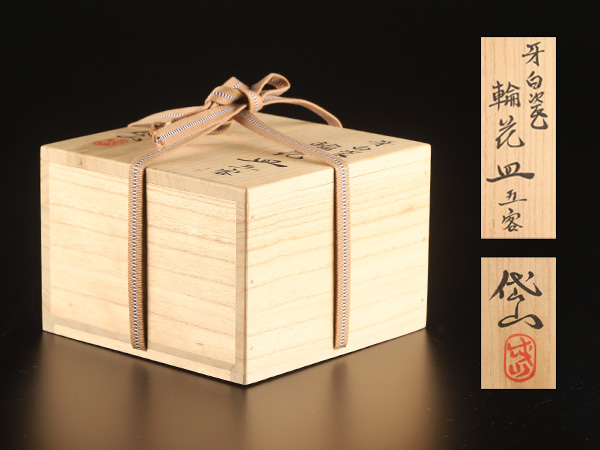 牙白瓷
輪花皿 五客
岱山